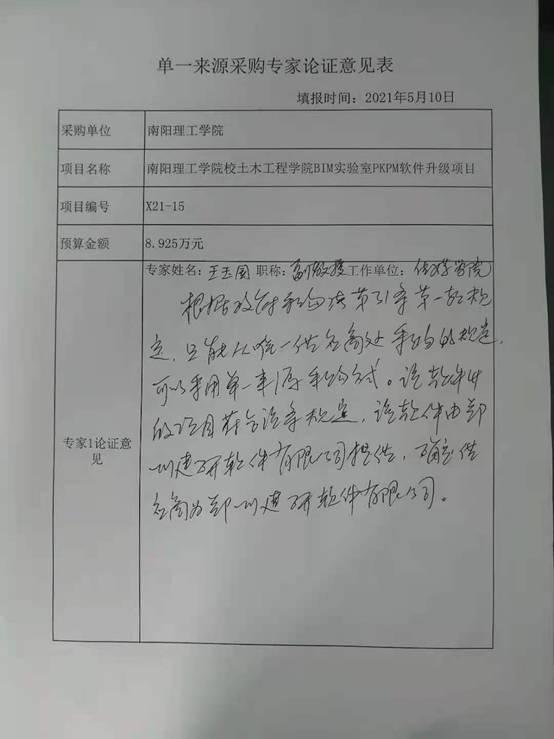 单一来源采购专家论证意见表
填报时间：2021年5月10日
采购单位 南阳理工学院
项目名称 南阳理工学院校土木工程学院BIM实验室PKPM软件升级项目
项目编号 X21-15
预算金额 8.925万元
专家1论证意见
专家姓名：王玉国 职称：副教授 工作单位：传媒学院
根据政府采购法第31条第一款规
定，只能从唯一供应商处采购的规定，
可以采用单一来源采购方式。该软件
的项目符合该条规定，该软件由郑
州建研软件有限公司提供，确定供
应商为郑州建研软件有限公司。